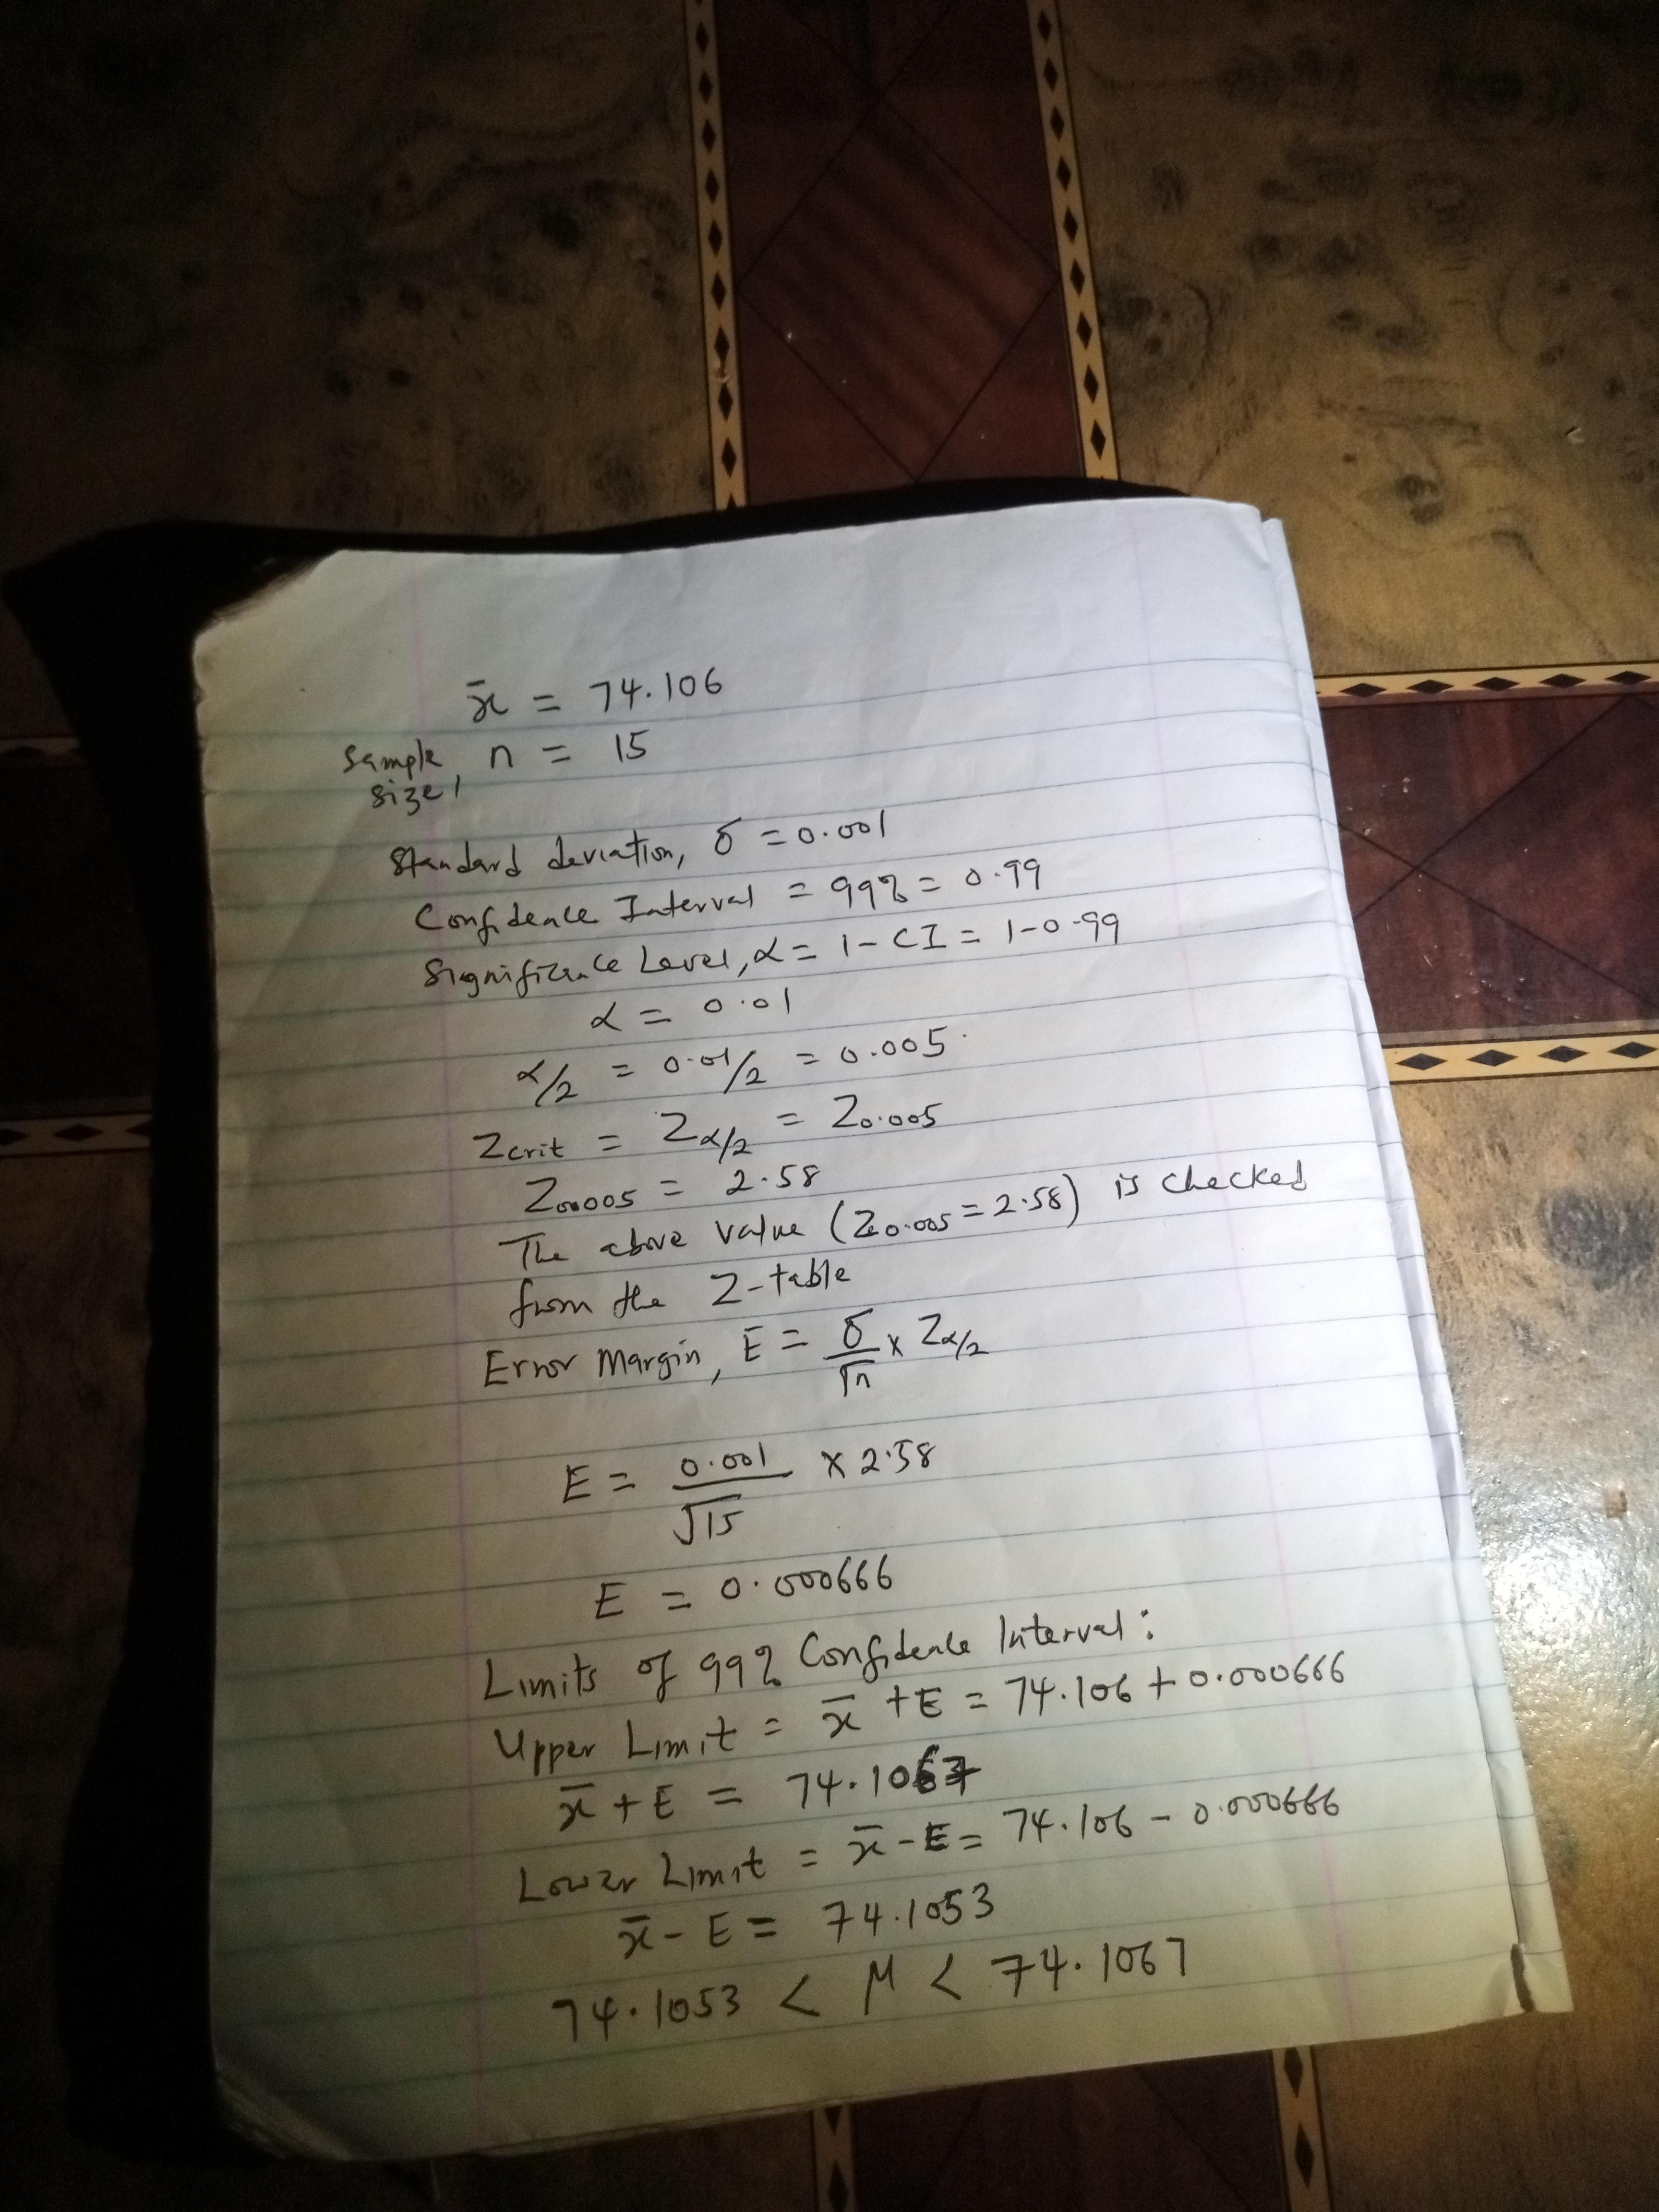 x̄ = 74.106
Sample size, n = 15
Standard deviation, σ = 0.001
Confidence Interval = 99% = 0.99
Significance Level, α = 1 - CI = 1-0.99
α = 0.01
α/2 = 0.01/2 = 0.005
Zcrit = Zα/2 = Z0.005
Z0.005 = 2.58
The above value (Z0.005 = 2.58) is checked
from the Z-table
Error Margin, E = σ/√n x Zα/2
E = 0.001/√15 x 2.58
E = 0.000666
Limits of 99% Confidence Interval:
Upper Limit = x̄ + E = 74.106 + 0.000666
x̄ + E = 74.1067
Lower Limit = x̄ - E = 74.106 - 0.000666
x̄ - E = 74.1053
74.1053 < μ < 74.1067